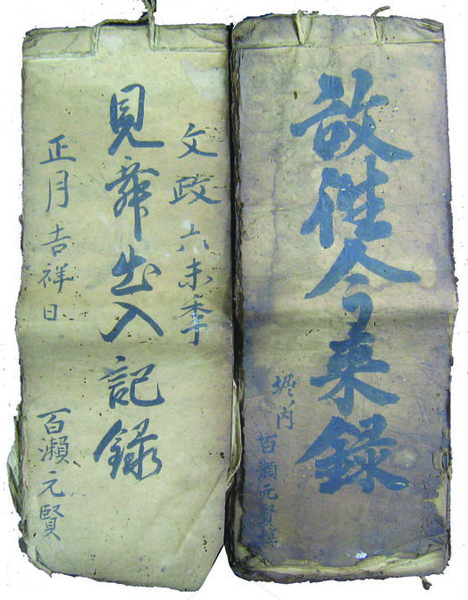 故徃今来録
堀内 百瀬元賢撰
文政六未季
見舞出入記録
正月吉祥日
百瀬元賢